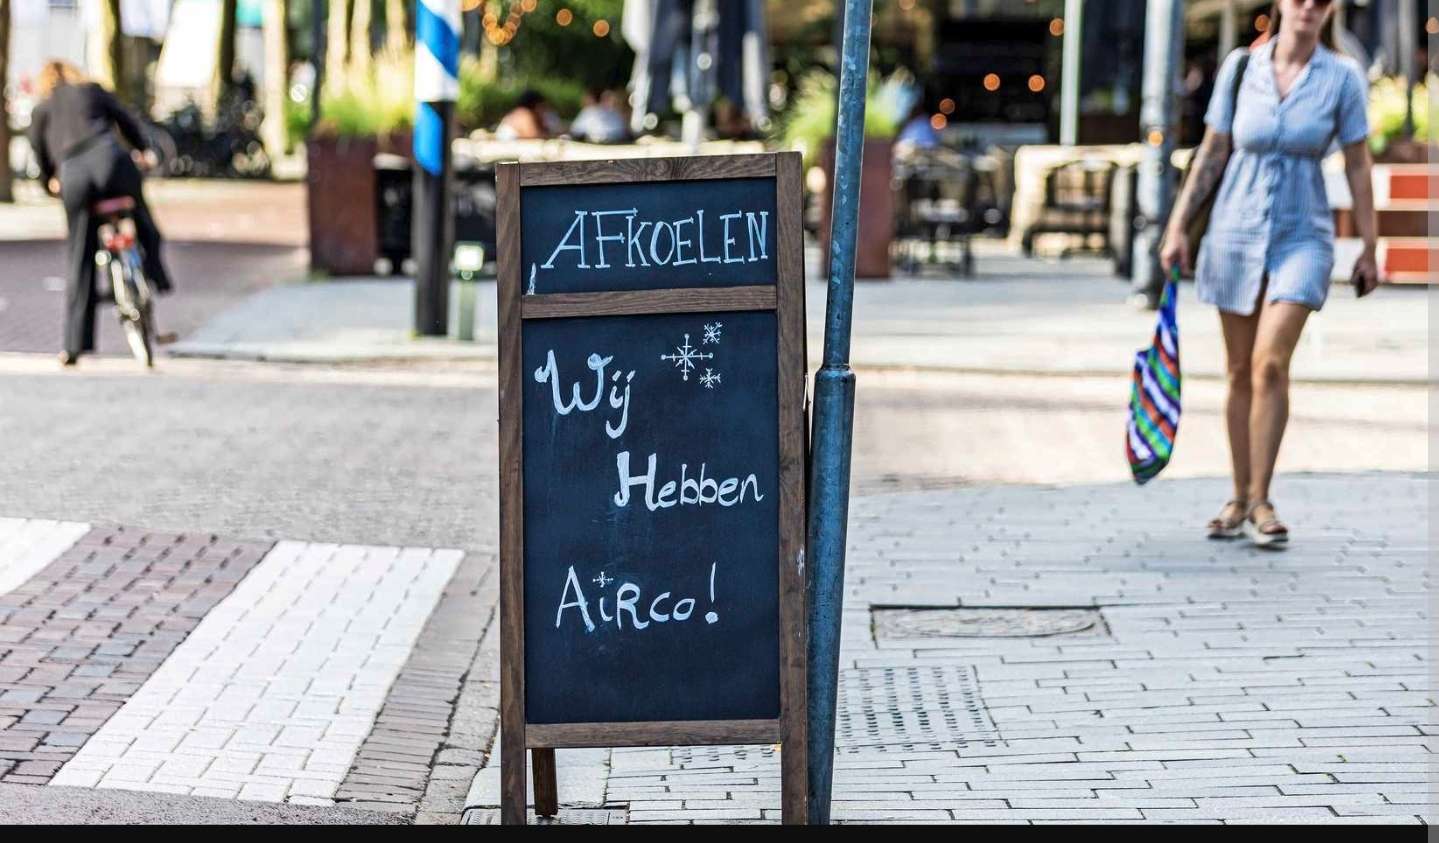 AFKOELEN
Wij
Hebben
AiRco!